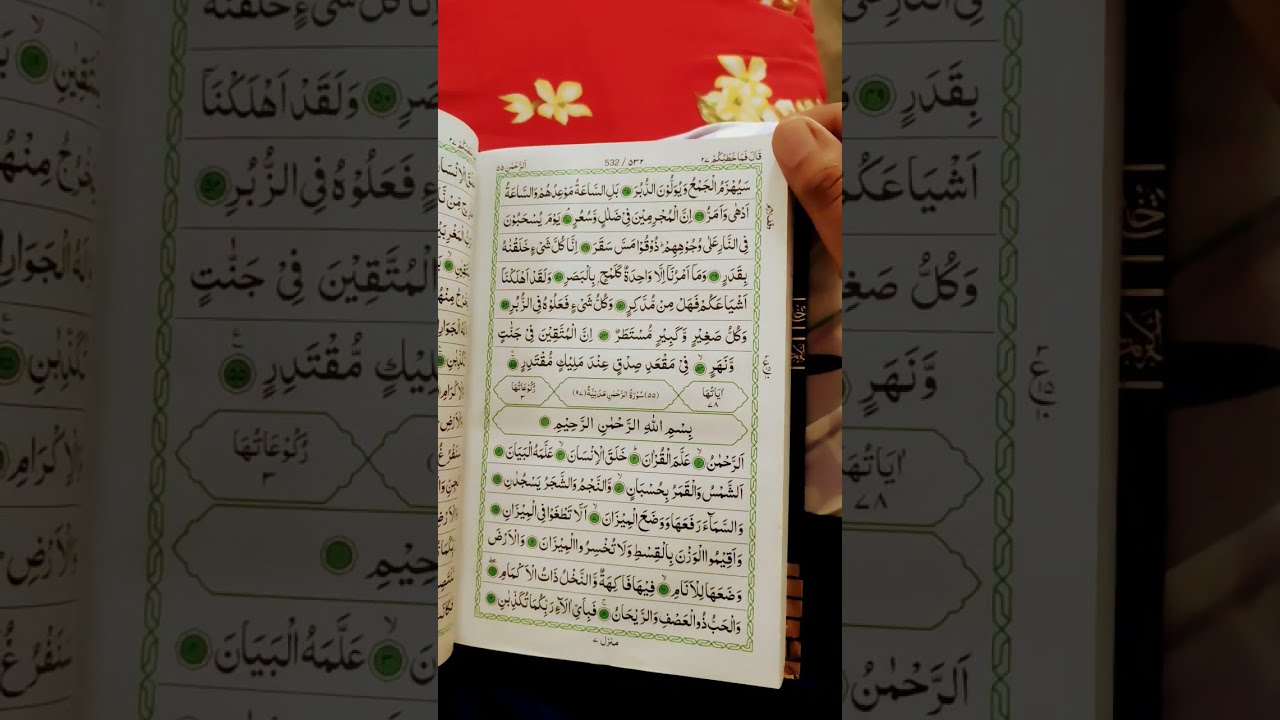 قَالَ فَمَا خَطْبُكُمْ ٢٧
٥٣٢ / 532
اَلرَّحْمٰن ٥٥
سَيُهْزَمُ الْجَمْعُ وَيُوَلُّوْنَ الدُّبُرَ ۝ بَلِ السَّاعَةُ مَوْعِدُهُمْ وَالسَّاعَةُ
اَدْهٰى وَاَمَرُّ ۝ اِنَّ الْمُجْرِمِيْنَ فِىْ ضَلٰلٍ وَّسُعُرٍ ۝ يَوْمَ يُسْحَبُوْنَ
فِى النَّارِ عَلٰى وُجُوْهِهِمْ ؕ ذُوْقُوْا مَسَّ سَقَرَ ۝ اِنَّا كُلَّ شَىْءٍ خَلَقْنٰهُ
بِقَدَرٍ ۝ وَمَاۤ اَمْرُنَاۤ اِلَّا وَاحِدَةٌ كَلَمْحٍۭ بِالْبَصَرِ ۝ وَلَقَدْ اَهْلَكْنَاۤ
اَشْيَاعَكُمْ فَهَلْ مِنْ مُّدَّكِرٍ ۝ وَكُلُّ شَىْءٍ فَعَلُوْهُ فِى الزُّبُرِ ۝
وَكُلُّ صَغِيْرٍ وَّكَبِيْرٍ مُّسْتَطَرٌ ۝ اِنَّ الْمُتَّقِيْنَ فِىْ جَنّٰتٍ
وَّنَهَرٍ ۝ فِىْ مَقْعَدِ صِدْقٍ عِنْدَ مَلِيْكٍ مُّقْتَدِرٍ ۝
اٰيَاتُهَا ٧٨
(٥٥) سُوْرَةُ الرَّحْمٰنِ مَدَنِيَّةٌ (٩٧)
رُكُوْعَاتُهَا ٣
بِسْمِ اللهِ الرَّحْمٰنِ الرَّحِيْمِ ۝
اَلرَّحْمٰنُ ۝ عَلَّمَ الْقُرْاٰنَ ۝ خَلَقَ الْاِنْسَانَ ۝ عَلَّمَهُ الْبَيَانَ ۝
اَلشَّمْسُ وَالْقَمَرُ بِحُسْبَانٍ ۝ وَّالنَّجْمُ وَالشَّجَرُ يَسْجُدٰنِ ۝
وَالسَّمَآءَ رَفَعَهَا وَوَضَعَ الْمِيْزَانَ ۝ اَلَّا تَطْغَوْا فِى الْمِيْزَانِ ۝
وَاَقِيْمُوا الْوَزْنَ بِالْقِسْطِ وَلَا تُخْسِرُوا الْمِيْزَانَ ۝ وَالْاَرْضَ
وَضَعَهَا لِلْاَنَامِ ۝ فِيْهَا فَاكِهَةٌ وَّالنَّخْلُ ذَاتُ الْاَكْمَامِ ۝
وَالْحَبُّ ذُو الْعَصْفِ وَالرَّيْحَانُ ۝ فَبِاَىِّ اٰلَآءِ رَبِّكُمَا تُكَذِّبٰنِ ۝
منزل ٧